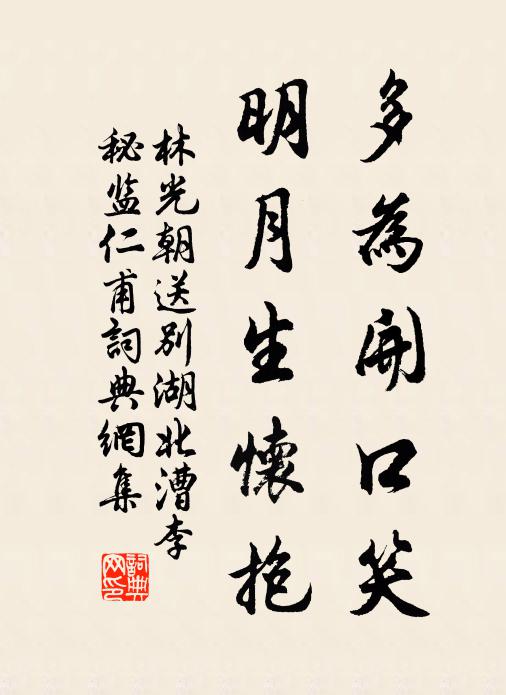 多為開口笑
明月生懷抱
林光朝送別湖北漕李
秘監仁甫詞典網集
詞典
网印